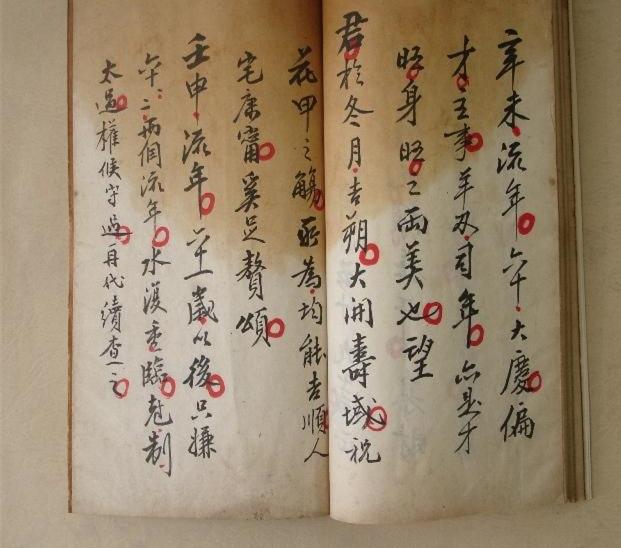 辛未流年六十大慶偏
才主事羊刃司年亦是才
旺身旺之両美也望
君於冬月吉朔大開壽域祝
花甲之觴所為均能吉順人
宅康甯奚足贅頌
壬申流年 歲以後只嫌
六十二両個流年水濅重臨尅制
太過權候守過再代續查之